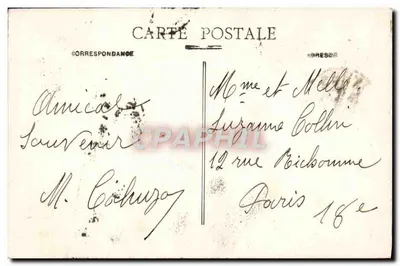 CARTE POSTALE
CORRESPONDANCE
ADRESSE
Amical
Souvenir
M. Cahuzoy
Mme et Melle
Suzanne Collin
12 rue Richomme
Paris 18e
CPAPHIL